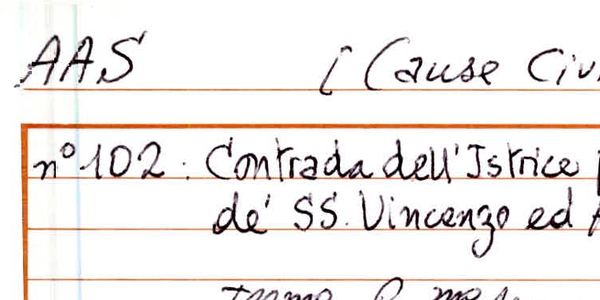 AAS [Cause Civ
n° 102: Contrada dell'Istrice
de' SS. Vincenzo ed